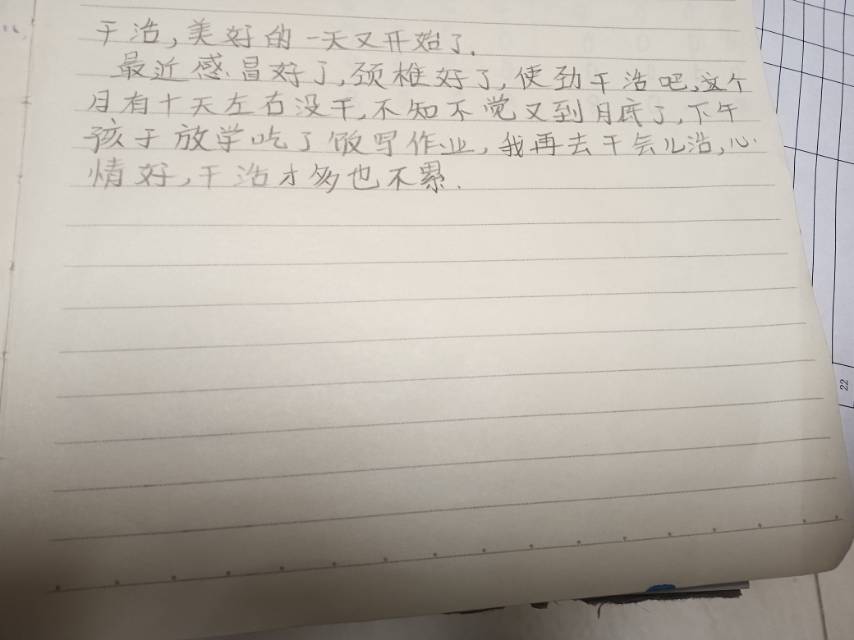 干浩,美好的一天又开始了.
最近感冒好了,颈椎好了,使劲干浩吧,这个
月有十天左右没干,不知不觉又到月底了,下午
孩于放学吃了饭写作业,我再去干会儿浩,心
情好,干浩才多也不累.
22